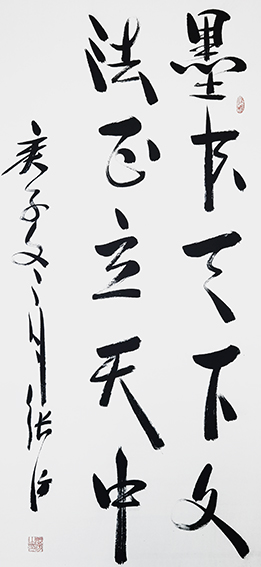 墨天下文
法正立天中
庚子冬月张